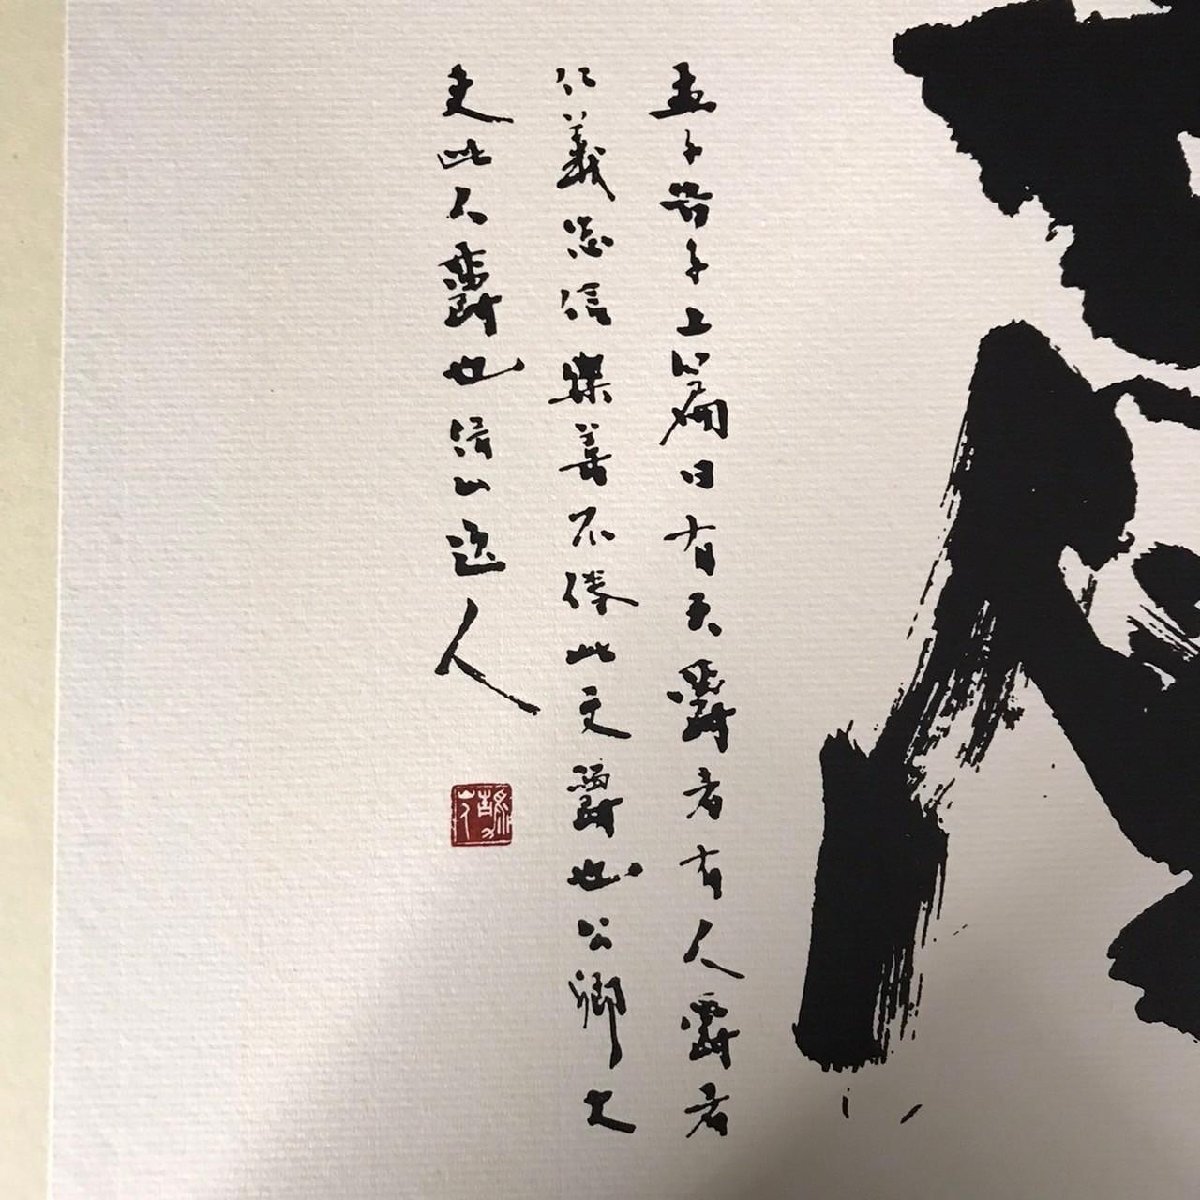 孟子告子上篇曰有天爵者有人爵者
仁義忠信樂善不倦此天爵也公卿大
夫此人爵也山逸人